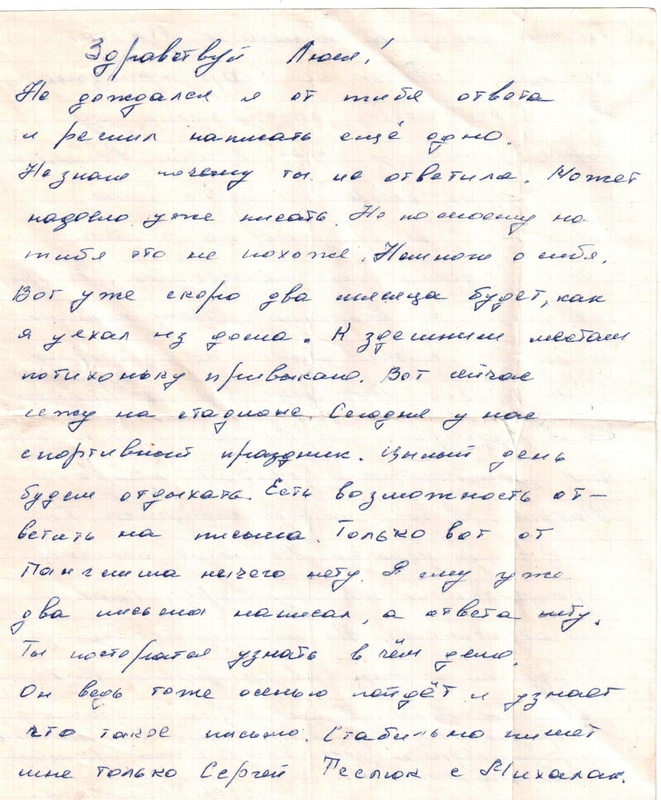 Здравствуй Люся!
Не дождался я от тибя ответа
и решил написать ещё одно.
Не знаю почему ты не ответила. Может
надоело уже писать. Но по моему на
тибя это не похоже. Немного о себя.
Вот уже скоро два месяца будет, как
я уехал из дома. К здешним местам
потихоньку привыкаю. Вот сейчас
сижу на стадионе. Сегодня у нас
спортивный праздник. Цылый день
будем отдыхать. Есть возможность от-
ветить на письма. Только вот от
ничего нету. Я ему уже
два письма написал, а ответа нету.
Ты постарайся узнать в чём дело.
Он ведь тоже осенью пойдёт и узнает
что такое письмо. Стабильно пишет
мне только Сергей Теслюк с Михалак.